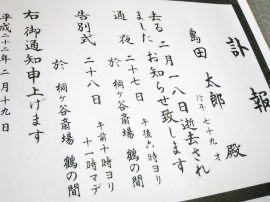 訃報
島田 太郎 殿
行年 七十九 才
去る 二月一八日逝去され
ましたお知らせ致します
通夜 二十七日 午後六時ヨリ
於 桐ヶ谷斎場 鶴の間
告別式 二十八日 午前十時ヨリ
十一時マデ
於 桐ヶ谷斎場 鶴の間
右御通知申上げます
平成二十二年 二月十九日